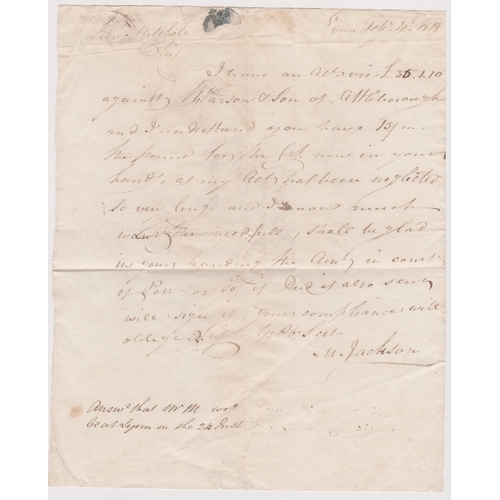 Lynn Feby. 4th. 1819
Mitchell
Sir
I have an Acct. vis £35.1.10
against Pearson & Son of Attleborough
and I understand you have 15/ in
the pound for the Cr. now in your
hands, as my Acct has been neglected
so very long and I now much
want the needfull, shall be glad
in your handing the Amt. in course
of Post or so, if Deed is also sent
will sign it, your compliance will
oblige Sir
M. Jackson
Answd. that Mr M wd.
be at Lynn on the 24 Inst.